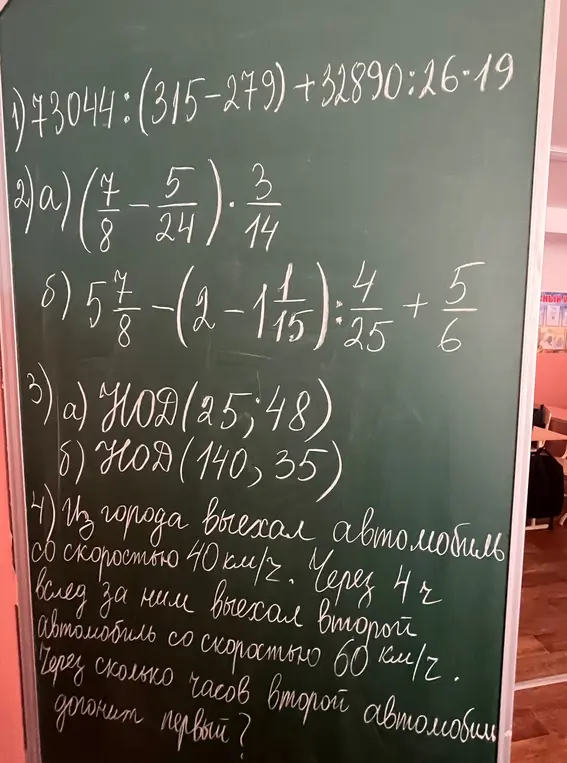 1) 73044:(315-279)+32890:26·19
2) а) (7/8 - 5/24) · 3/14
б) 5 7/8 - (2 - 1 1/15) : 4/25 + 5/6
3) а) НОД(25;48)
б) НОД(140,35)
4) Из города выехал автомобиль
со скоростью 40 км/ч. Через 4 ч
вслед за ним выехал второй
автомобиль со скоростью 60 км/ч.
Через сколько часов второй автомобиль
догонит первый?